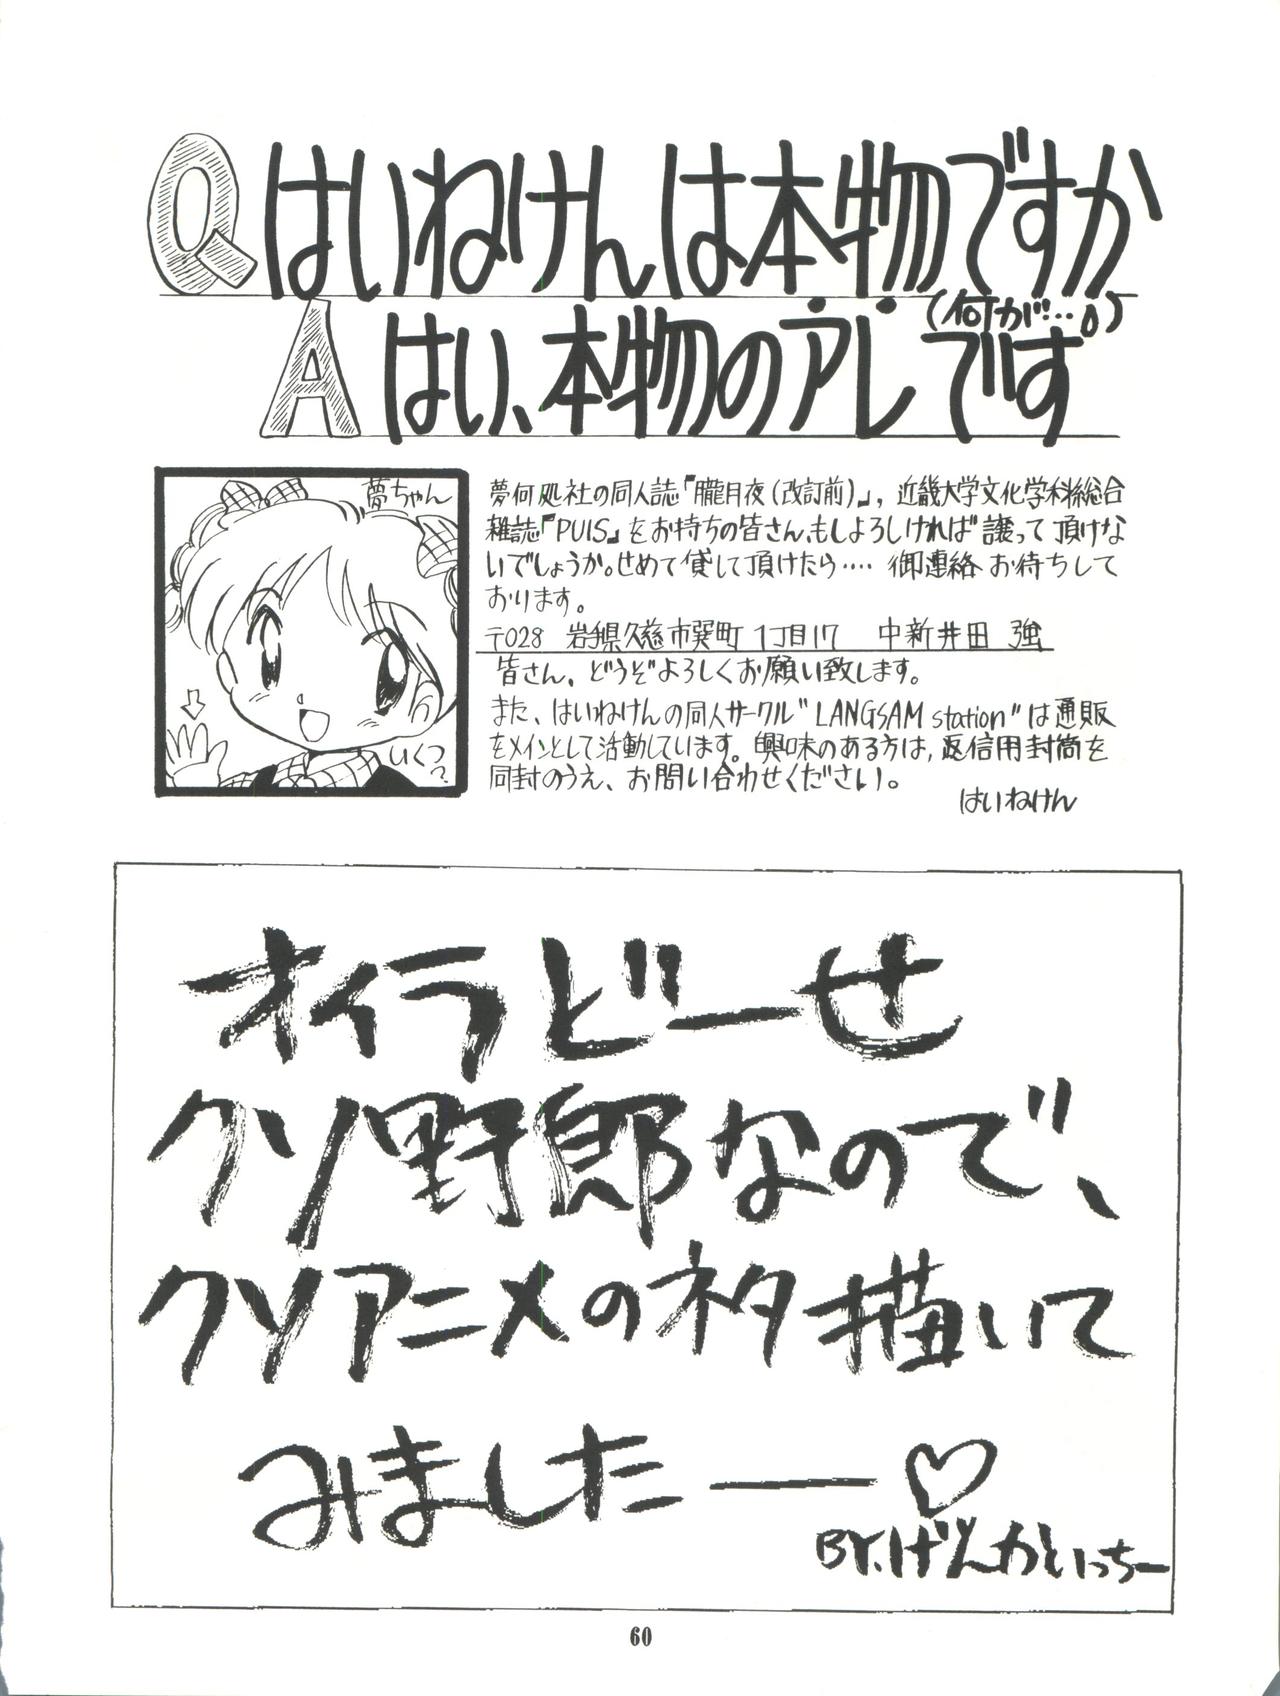 Q はいねけんは本物ですか
(何が…。)
A はい、本物のアレです
夢ちゃん
いくつ?
夢何処社の同人誌『朧月夜(改訂前)』，近畿大学文化学科総合
雑誌『PUIS』をお持ちの皆さん、もしよろしければ譲って頂けな
いでしょうか。せめて貸して頂けたら…. 御連絡お待ちして
おります。
〒028 岩手県久慈市巽町1丁目17 中新井田 強
皆さん、どうぞよろしくお願い致します。
また、はいねけんの同人サークル"LANGSAM station"は通販
をメインとして活動しています。興味のある方は，返信用封筒を
同封のうえ、お問い合わせください。
はいねけん
オイラどーせ
クソ野郎なので、
クソアニメのネタ描いて
みましたー♡
BY.げんかといっちー
60